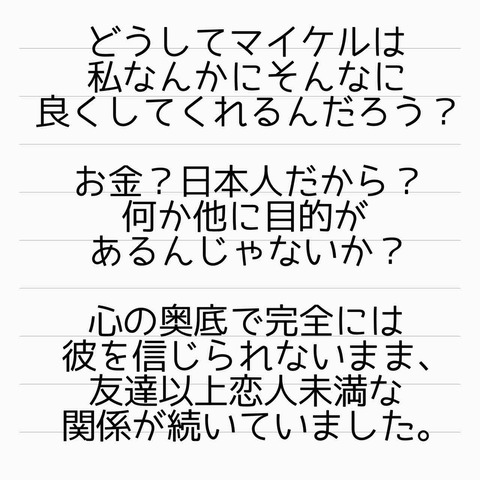 どうしてマイケルは
私なんかにそんなに
良くしてくれるんだろう？
お金？日本人だから？
何か他に目的が
あるんじゃないか？
心の奥底で完全には
彼を信じられないまま、
友達以上恋人未満な
関係が続いていました。